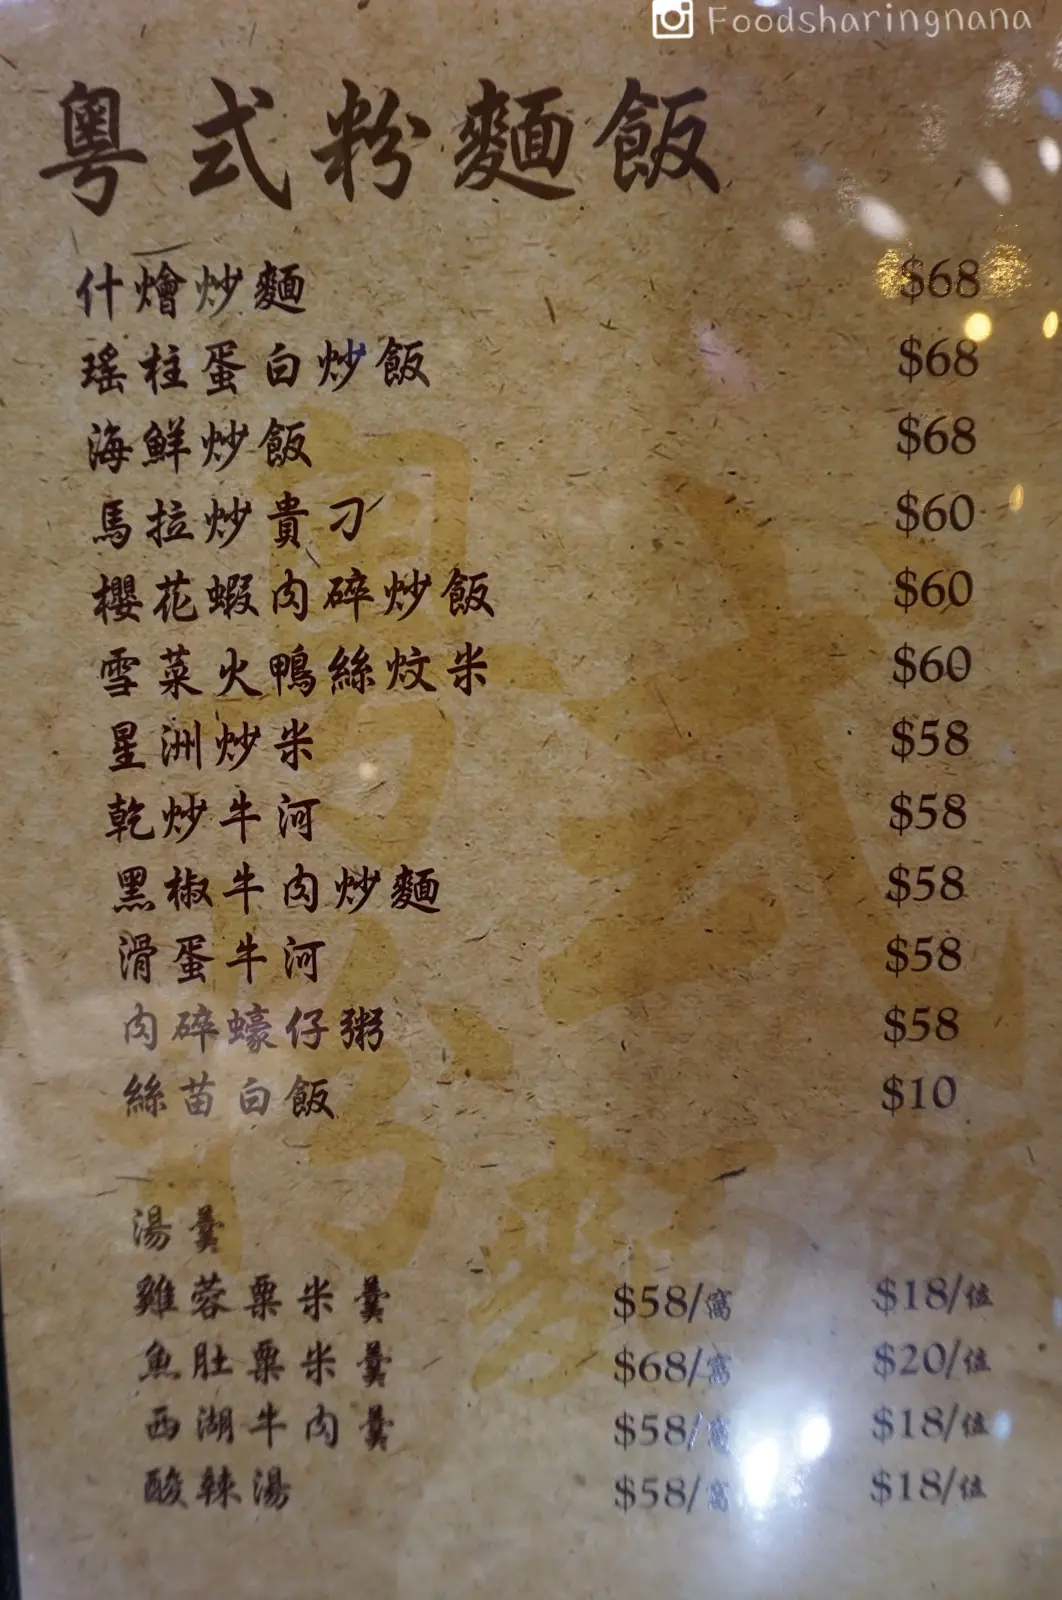 Foodsharingnana
粵式粉麵飯
什燴炒麵 $68
瑤柱蛋白炒飯 $68
海鮮炒飯 $68
馬拉炒貴刁 $60
櫻花蝦肉碎炒飯 $60
雪菜火鴨絲炆米 $60
星洲炒米 $58
乾炒牛河 $58
黑椒牛肉炒麵 $58
滑蛋牛河 $58
肉碎蠔仔粥 $58
絲苗白飯 $10
湯羹
雞蓉粟米羹 $58/窩 $18/位
魚肚粟米羹 $68/窩 $20/位
西湖牛肉羹 $58/窩 $18/位
酸辣湯 $58/窩 $18/位